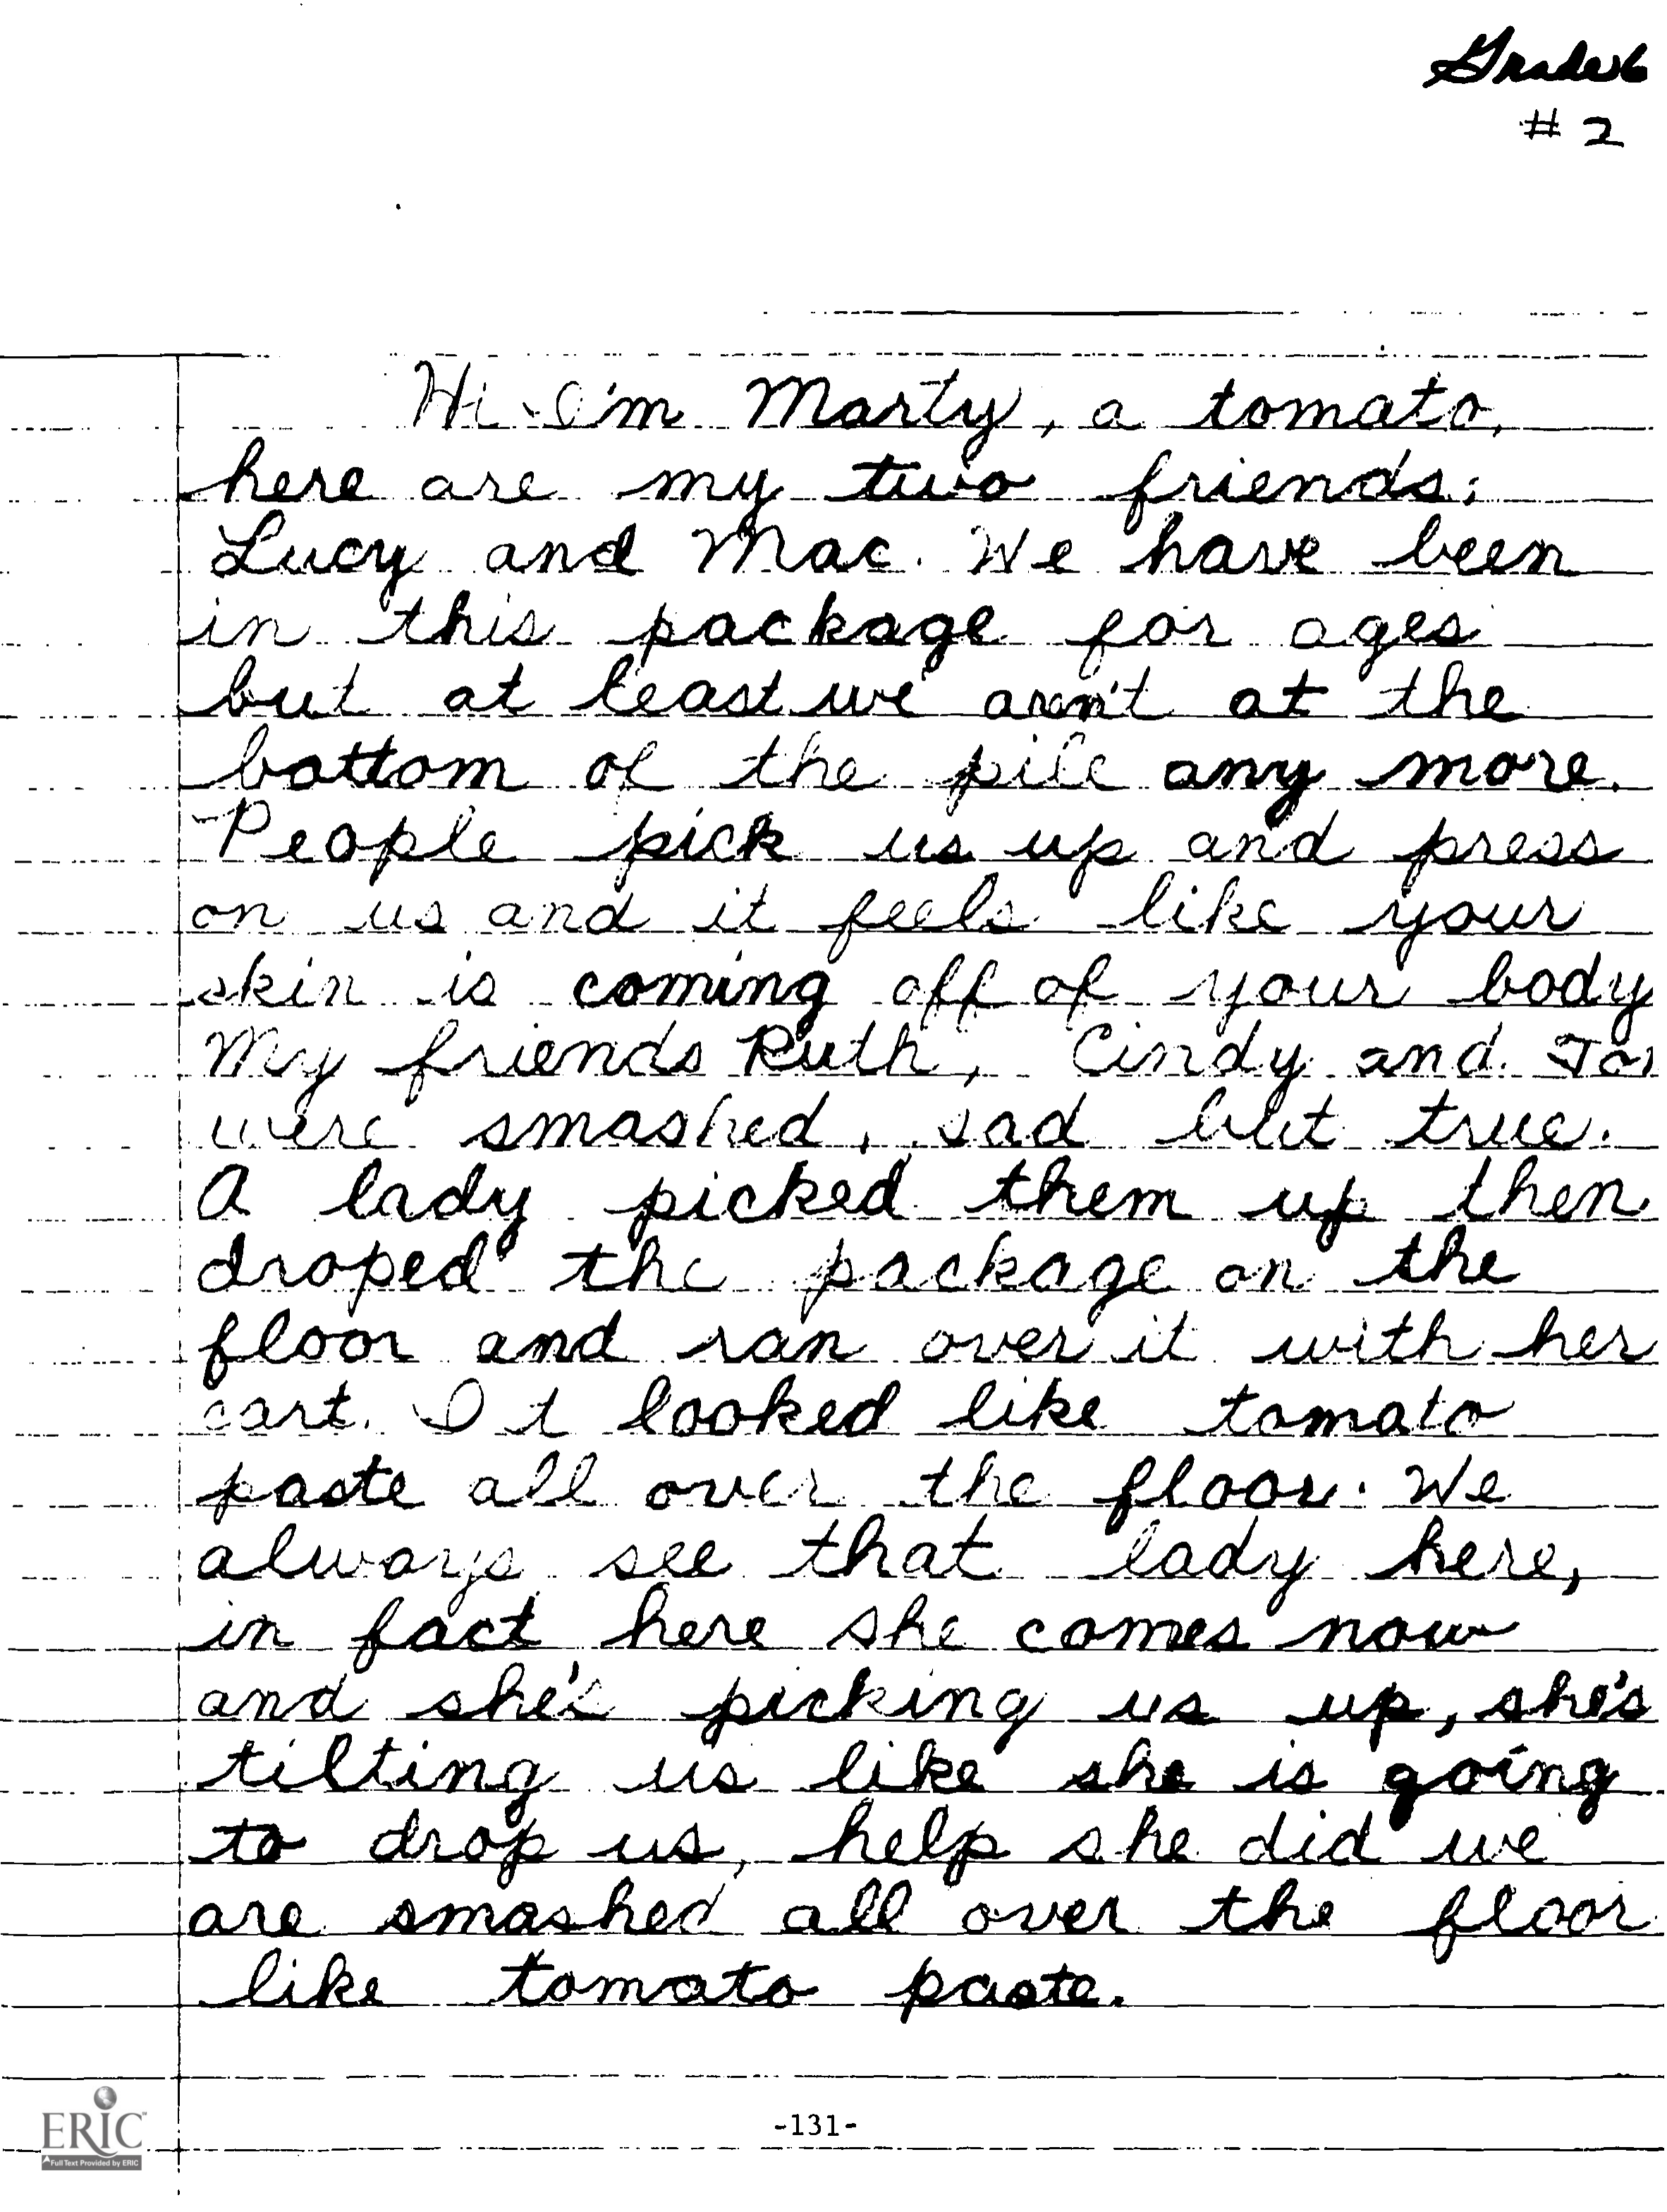 Grade 6
# 2
Hi I'm Marty, a tomato,
here are my two friends;
Lucy and Mac. We have been
in this package for ages
but at least we aren't at the
bottom of the pile any more.
People pick us up and press
on us and it feels like your
skin is coming off of your body
My friends Ruth, Cindy and
were smashed, sad but true.
A lady picked them up then
droped the package on the
floor and ran over it with her
cart. It looked like tomato
paste all over the floor. We
always see that lady here,
in fact here she comes now
and she's picking us up, she's
tilting us like she is going
to drop us, help she did we
are smashed all over the floor
like tomato paste.
-131-
ERIC
Full Text Provided by ERIC